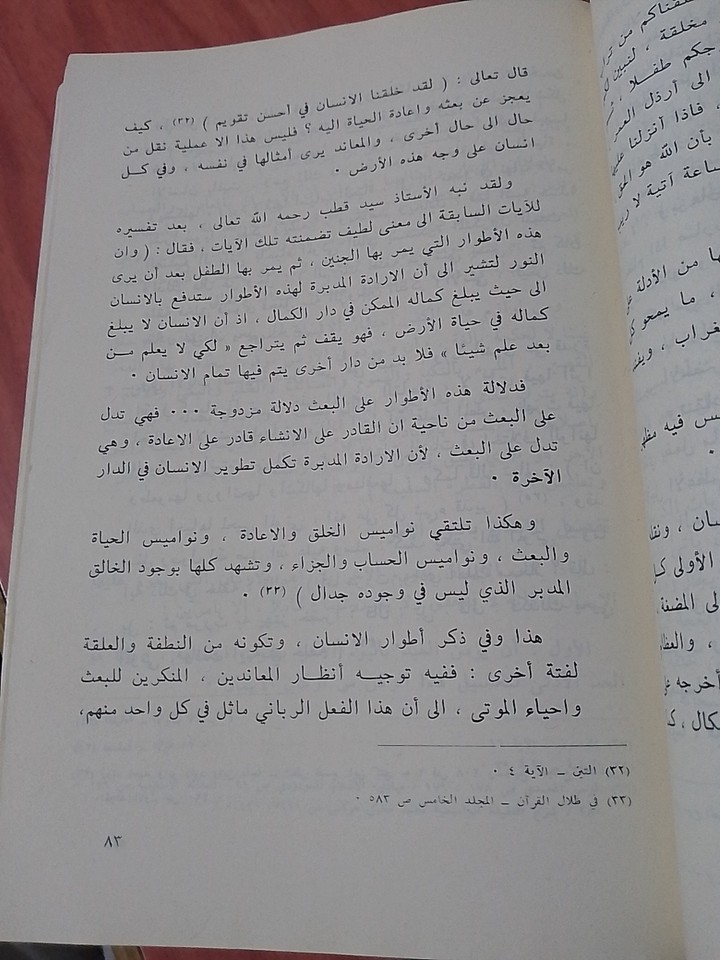 قال تعالى : ( لقد خلقنا الانسان في أحسن تقويم ) (٣٢) ، كيف
يعجز عن بعثه واعادة الحياة اليه ؟ فليس هذا الا عملية نقل من
حال الى حال أخرى ، والمعاند يرى أمثالها في نفسه ، وفي كـل
انسان على وجه هذه الأرض ٠
ولقد نبه الأستاذ سيد قطب رحمه الله تعالى ، بعد تفسيره
للآيات السابقة الى معنى لطيف تضمنته تلك الآيات ، فقال : ( وان
هذه الأطوار التي يمر بها الجنين ، ثم يمر بها الطفل بعد أن يرى
النور لتشير الى أن الارادة المدبرة لهذه الأطوار ستدفع بالانسان
الى حيث يبلغ كماله الممكن في دار الكمال ، اذ أن الانسان لا يبلغ
كماله في حياة الأرض ، فهو يقف ثم يتراجع « لكي لا يعلم مـن
بعد علم شيئا » فلا بد من دار أخرى يتم فيها تمام الانسان ٠
فدلالة هذه الأطوار على البعث دلالة مزدوجة ٠٠٠ فهي تدل
على البعث من ناحية ان القادر على الانشاء قادر على الاعادة ، وهي
تدل على البعث ، لأن الارادة المدبرة تكمل تطوير الانسان في الدار
الآخرة ٠
وهكذا تلتقي نواميس الخلق والاعادة ، ونواميس الحياة
والبعث ، ونواميس الحساب والجزاء ، وتشهد كلها بوجود الخالق
المدبر الذي ليس في وجوده جدال ) (٣٣) ٠
هذا وفي ذكر أطوار الانسان ، وتكونه من النطفة والعلقة
لفتة أخرى : ففيه توجيـه أنظـار المعاندين ، المنكرين للبعث
واحياء الموتى ، الى أن هذا الفعل الرباني ماثل في كل واحد منهم،
(٣٢) التين – الآية ٤ ٠
(٣٣) في ظلال القرآن – المجلد الخامس ص ٥٨٣ ٠
٨٣